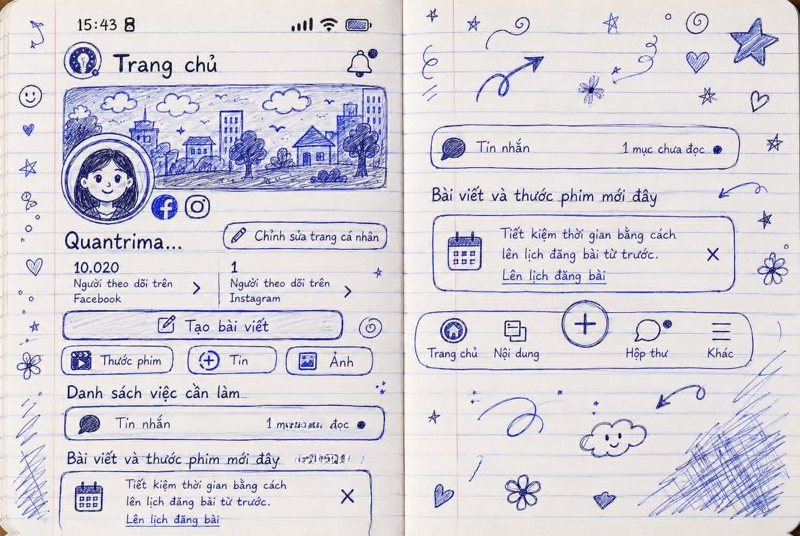 15:43
Trang chủ
Quantrima...
Chỉnh sửa trang cá nhân
10.020
Người theo dõi trên
Facebook
1
Người theo dõi trên
Instagram
Tạo bài viết
Thước phim
Tin
Ảnh
Danh sách việc cần làm
Tin nhắn
1 đọc
Bài viết và thước phim mới đây
Tiết kiệm thời gian bằng cách
lên lịch đăng bài từ trước.
Lên lịch đăng bài
Tin nhắn
1 mục chưa đọc
Bài viết và thước phim mới đây
Tiết kiệm thời gian bằng cách
lên lịch đăng bài từ trước.
Lên lịch đăng bài
Trang chủ
Nội dung
Hộp thư
Khác